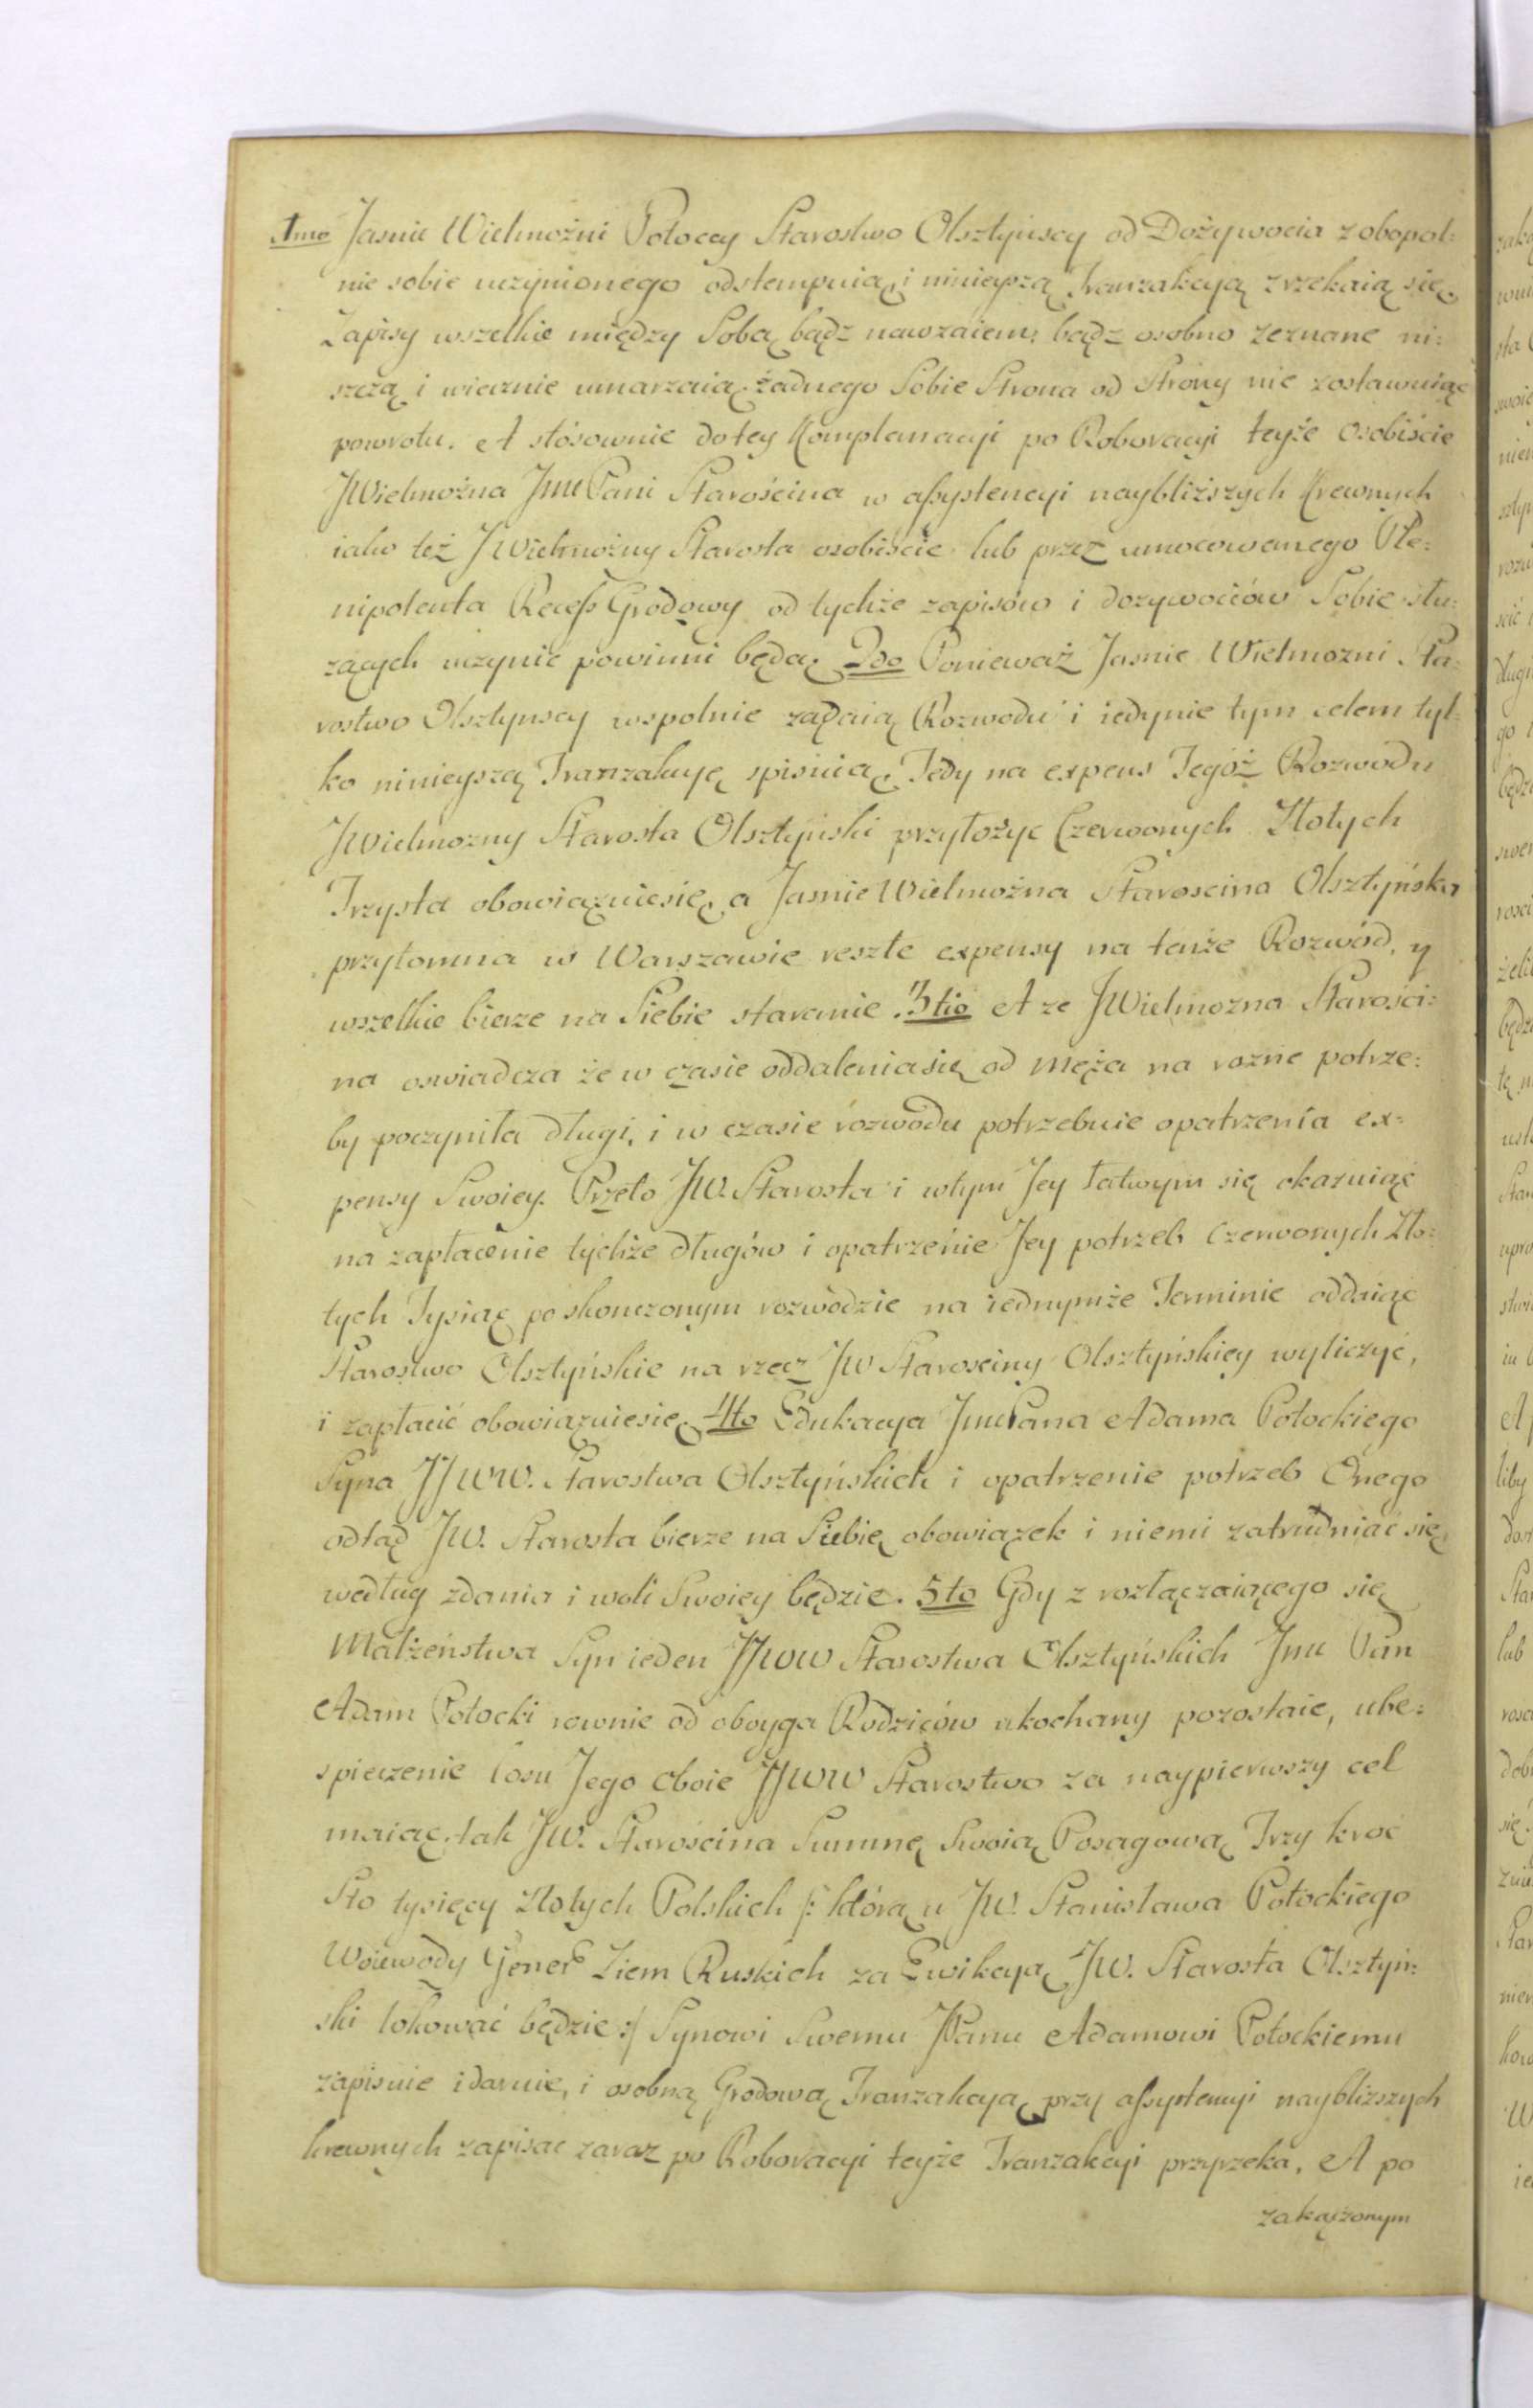 1mo Jasnie Wielmożni Potoccy Starostwo Olsztyńscy od Dożywocia zobopol:
nie sobie uczynionego odstempuią, i ninieyszą Tranzakcyą zrzekaią się.
Zapisy wszelkie między Sobą bądz nawzaiem, bądz osobno zeznane ni:
szczą i wiecznie umarzaią, żadnego Sobie Strona od Strony nie zostawuiąc
powrotu. A stósownie do tey Komplanacyi po Roboracyi teyże Osobiście
JWielmożna Jmć Pani Starościna w assystencyi naybliższych Krewnych
iako też JWielmożny Starosta osobiście lub przez umocowanego Ple:
nipotenta Recess Grodowy od tychże zapisów i dozywociów Sobie słu:
zących uczynic powinni będą. 2do Ponieważ Jasnie Wielmozni Sta:
rostwo Olsztynscy wspolnie ządaią Rozwodu i iedynie tym celem tyl:
ko ninieyszą Tranzakcyę spisuią, Tedy na expens Tegóż Rozwodu
JWielmozny Starosta Olsztyński przyłożyc Czerwonych Złotych
Trzysta obowiązuiesię, a Jasnie Wielmożna Staroscina Olsztyńska
przytomna w Warszawie resztę expensy na tenże Rozwód, y
wszelkie bierze na Siebie staranie. 3tio A ze JWielmozna Starości:
na oswiadcza że w czasie oddaleniasię od Męża na rozne potrze:
by poczyniła długi, i w czasie rozwodu potrzebuie opatrzenia ex:
pensy Swoiey. Przeto JW. Starosta i wtym Jey łatwym się okazuiąc
na zapłacenie tychże długów i opatrzenie Jey potrzeb Czerwonych Zło:
tych Tysiąc po skonczonym rozwodzie na iednymże Terminie oddaiąc
Starostwo Olsztyńskie na rzecz JW Starosciny Olsztyńskiey wyliczyć,
i zapłacić obowiązuiesię. 4to Edukacya Jmć Pana Adama Potockiego
Syna JJWW. Starostwa Olsztyńskich i opatrzenie potrzeb Onego
odtąd JW. Starosta bierze na Siebie obowiązek i niemi zatrudniać się
według zdania i woli Swoiey będzie. 5to Gdy z rozłączaiącego się
Małżeństwa Syn ieden JJWW Starostwa Olsztyńskich Jmć Pan
Adam Potocki rownie od oboyga Rodziców ukochany pozostaie, ube:
spieczenie losu Jego Oboie JJWW Starostwo za naypierwszy cel
maiąc, tak JW. Starościna Summę Swoią Posagową Trzy kroć
Sto tysięcy Złotych Polskich /: którą u JW. Stanisława Potockiego
Woiewody Gener Ziem Ruskich za Ewikcyą JW. Starosta Olsztyń:
ski lokować będzie :/ Synowi Swemu JPanu Adamowi Potockiemu
zapisuie i daruie, i osobną Grodową Tranzakcyą przy assystencyi naybliższych
krewnych zapisac zaraz po Roboracyi teyże Tranzakcyi przyrzeka. A po
zakąszonym